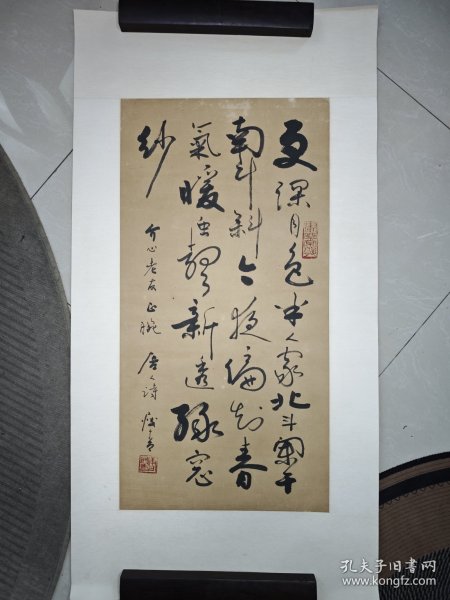 更深月色半人家北斗闌干
南斗斜今夜偏知春
氣暖虫聲新透綠窓
紗
介心老友正腕 唐人詩
孔夫子旧书网
www.kongfz.com